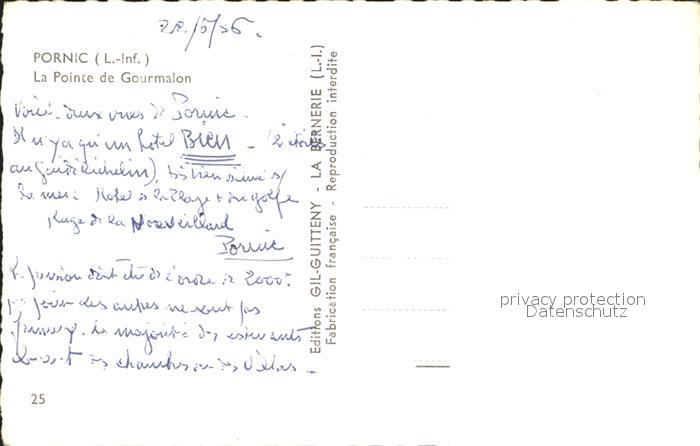 22/5/56.
PORNIC ( L.-Inf. )
La Pointe de Gourmalon
Voici deux vues de Pornic.
Il n'y a qu'un hotel BIEN - (2 étoiles
au guide Michelin), très bien situé s/
la mer: Hotel de la Plage + du golfe
Plage de la Noeveillard
Pornic
La pension doit être de l'ordre de 2000:
par jour les autres ne sont pas
fameux. La majorité des estivants
louent des chambres ou des Villas -
25
Editions GIL-GUITTENY - LA BERNERIE (L.-I.)
Fabrication française - Reproduction interdite
privacy protection
Datenschutz